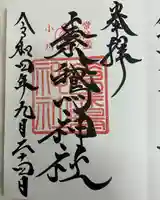 奉拝
素鵞神社
令和四年九月二十四日